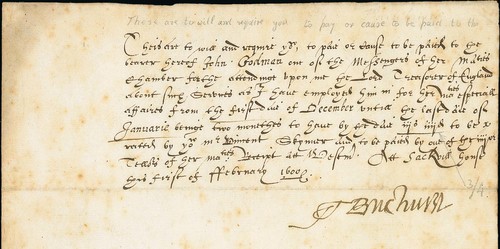 These are to will and require you to pay or cause to be paid to the
Theis are to will and require yo, to paie or cause to be paied to the
bearer hereof John Godman one of the Messengers of her Mats
Chamber for the attending upon me the Lord Treasorer of England
about such Services as I have employed him in for her mats especiall
affaires from the first daie of December untill the last daie of
Januarie beinge two monethes to have by the daie iijs iiijd to be
rated by yo mr Vincent Skynner and to be paied by out of
of her mats Receipt at Westm. Att Sackvill house
this first of ffebruary 1600
3/4
T Buchurst